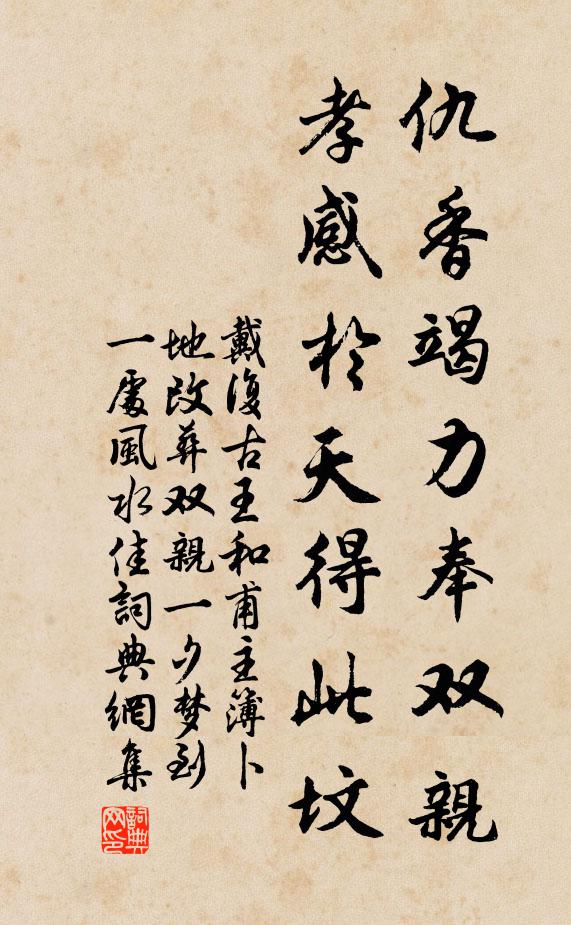 仇香竭力奉双親
孝感於天得此坟
戴復古王和甫主簿卜
地改葬双親一夕梦到
一處風水佳詞典網集
詞典網印